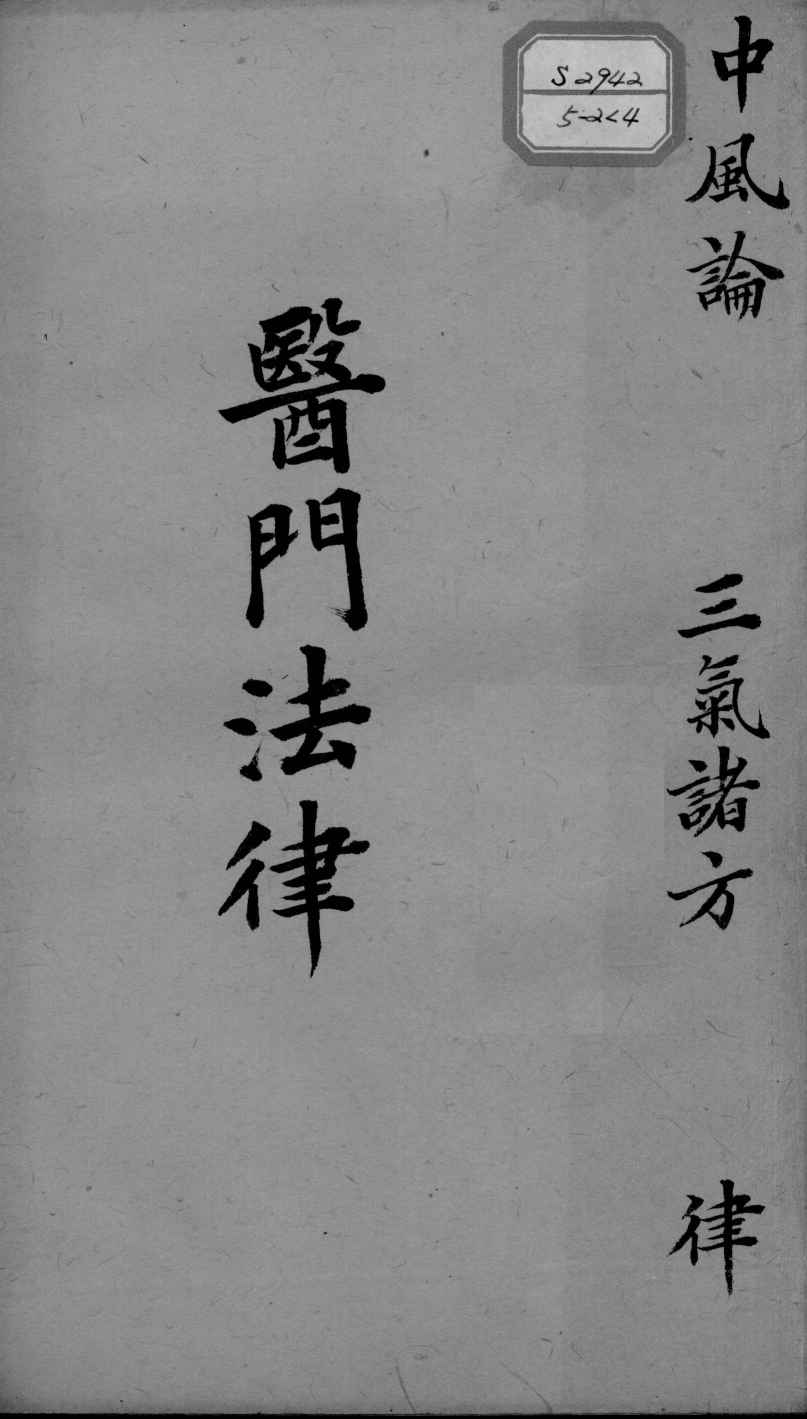 S2942
5-2<4
中風論
三氣諸方
律
醫門法律